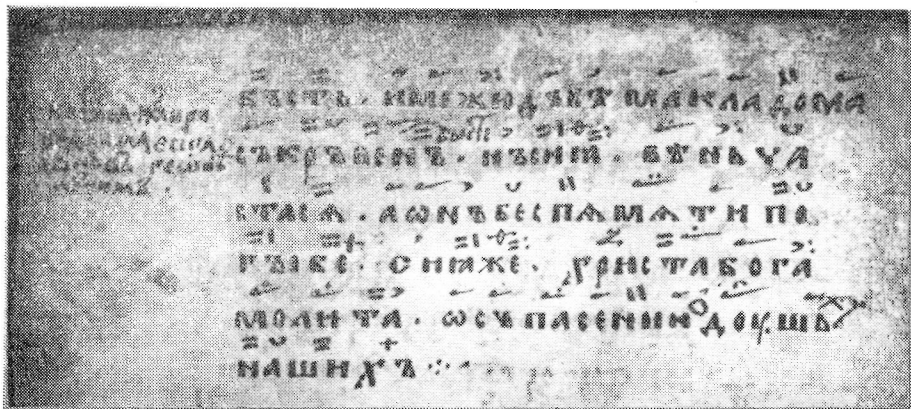 бъість · имежюдъвѣмакладома
съкръвенъ · нъінѧ · вѣньча
стасѧ · аѡнъбеспѧмѧти по
гъібе · снимже · христабога
молита · ѡсъпасениидоушь
нашихъ